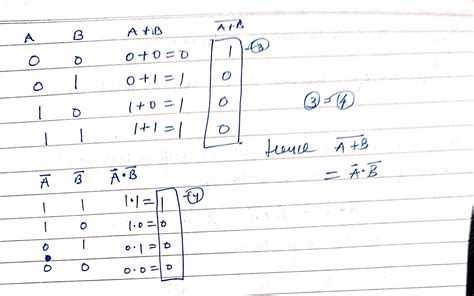 A B A+B \overline{A+B}
0 0 0+0=0 1 - ③
0 1 0+1=1 0
1 0 1+0=1 0
1 1 1+1=1 0
③ = ④
Hence \overline{A+B}
= Ā·B̄
Ā B̄ Ā·B̄
1 1 1·1=1 - ④
1 0 1·0=0
0 1 0·1=0
0 0 0·0=0